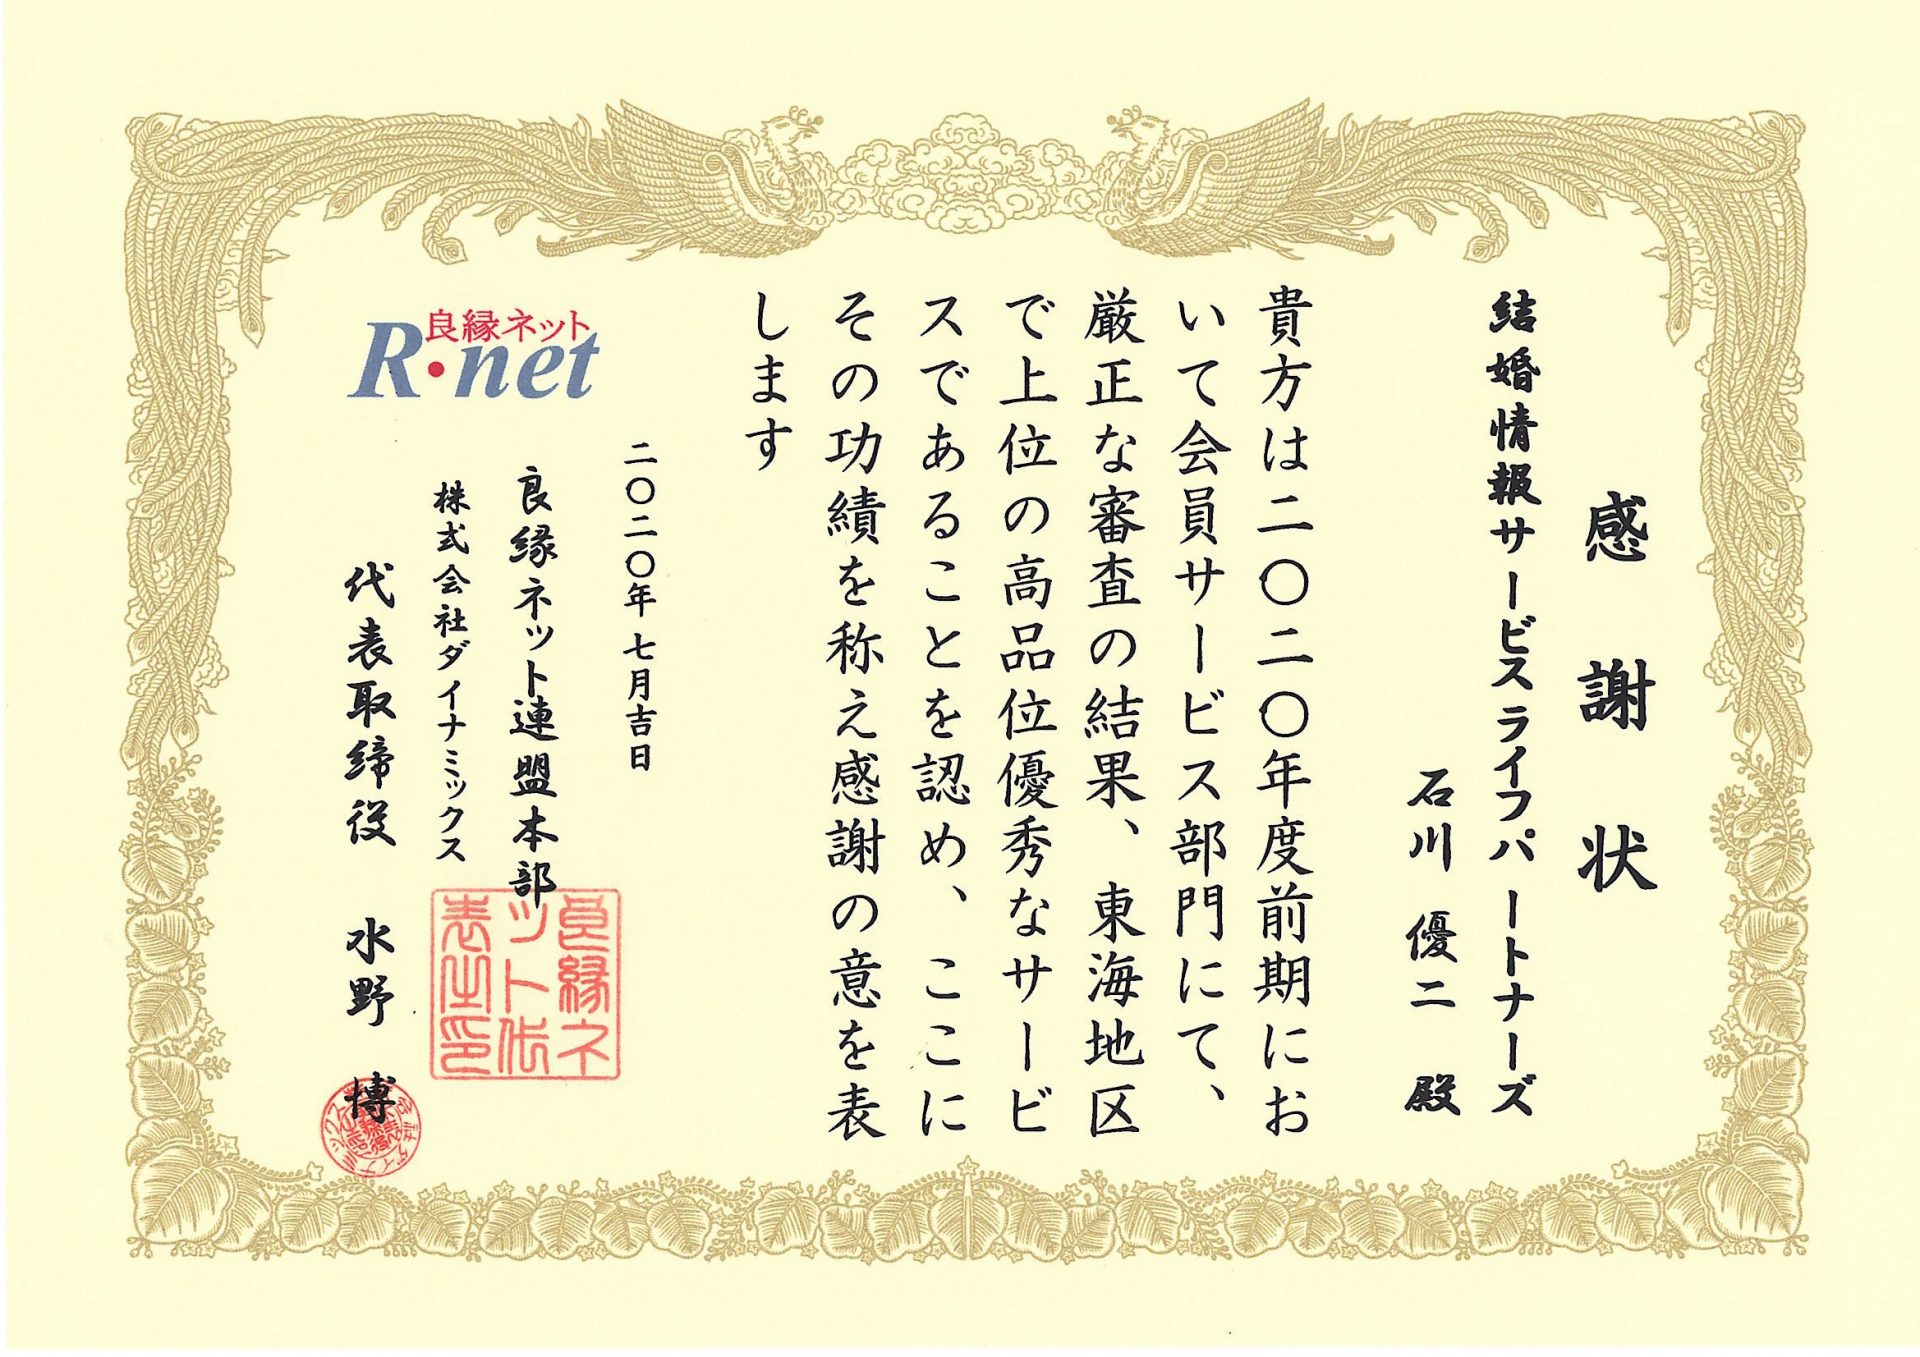 感謝状
結婚情報サービスライフパートナーズ
石川 優二 殿
貴方は二〇二〇年度前期にお
いて会員サービス部門にて、
厳正な審査の結果、東海地区
で上位の高品位優秀なサービ
スであることを認め、ここに
その功績を称え感謝の意を表
します
二〇二〇年七月吉日
良縁ネット連盟本部
株式会社ダイナミックス
代表取締役 水野 博
良縁ネット
R・net
良縁ネ
ット代
表之印